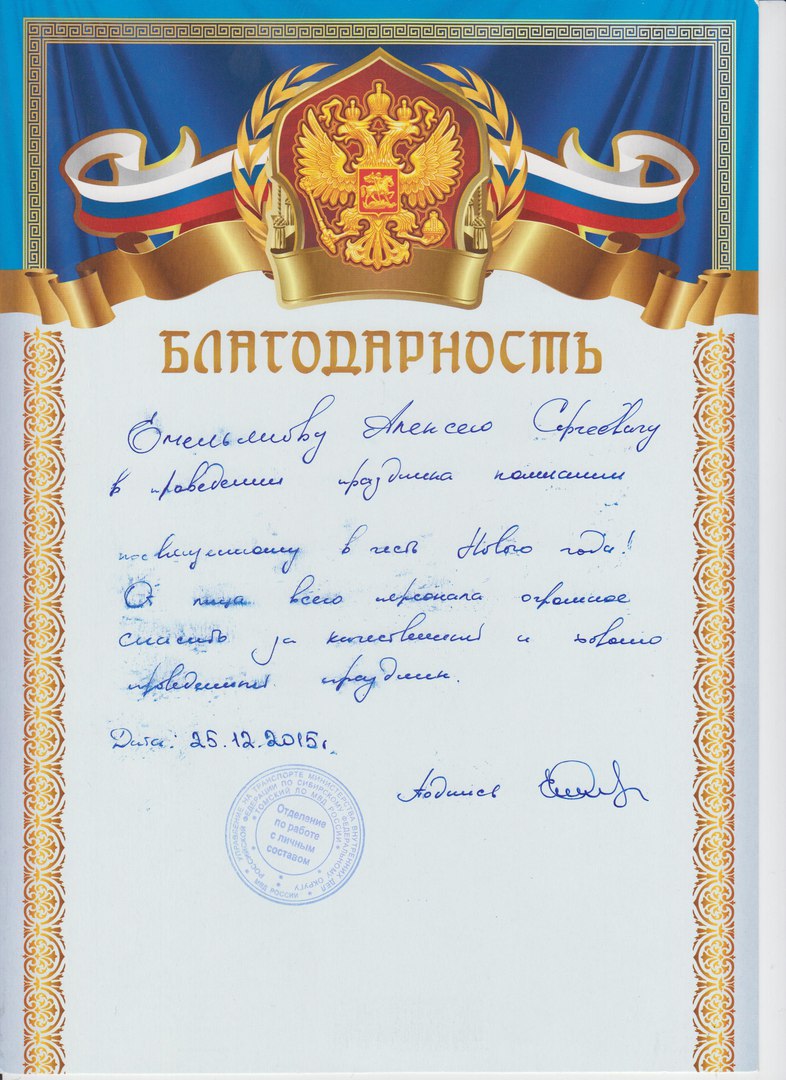 БЛАГОДАРНОСТЬ
Емельянову Алексею Сергеевичу
в проведении праздника компании
посвященному в честь Нового года!
От лица всего персонала огромное
спасибо за качественный и хорошо
проведенный праздник.
Дата: 25.12.2015г.
Подпись
УПРАВЛЕНИЕ НА ТРАНСПОРТЕ МИНИСТЕРСТВА ВНУТРЕННИХ ДЕЛ
РОССИЙСКОЙ ФЕДЕРАЦИИ ПО СИБИРСКОМУ ФЕДЕРАЛЬНОМУ ОКРУГУ
ТОМСКИЙ ЛО МВД РОССИИ
Отделение
по работе
с личным
составом
МВД РОССИИ